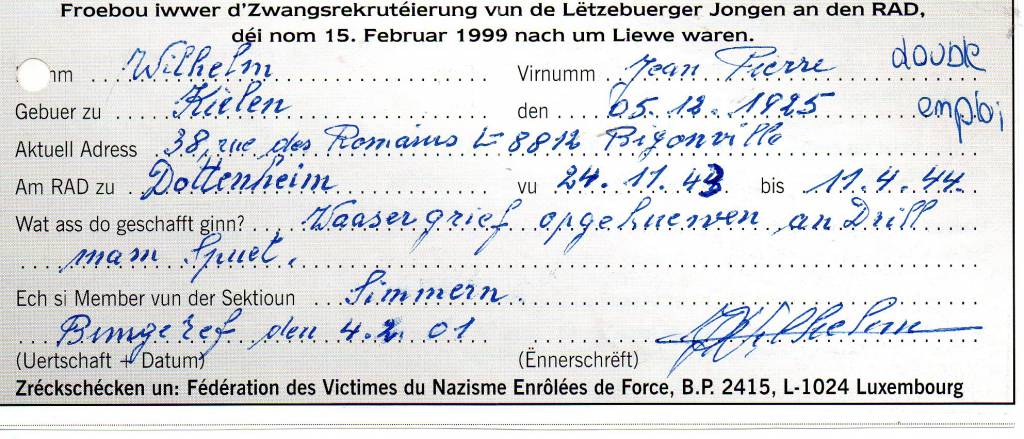 Froebou iwwer d'Zwangsrekrutéierung vun de Lëtzebuerger Jongen an den RAD,
déi nom 15. Februar 1999 nach um Liewe waren.
mm Wilhelm Virnumm Jean Pierre double
Gebuer zu Kielen den 05.12.1925 emploi
Aktuell Adress 38, rue des Romains L-8812 Bigonville
Am RAD zu Dottenheim vu 24.11.43 bis 11.4.44
Wat ass do geschafft ginn? Waasergrief opgehuewen an Drill
mam Spuet.
Ech si Member vun der Sektioun Simmern.
Bungeref den 4.2.01 JPWilhelm
(Uertschaft + Datum) (Ënnerschrëft)
Zréckschécken un: Fédération des Victimes du Nazisme Enrôlées de Force, B.P. 2415, L-1024 Luxembourg